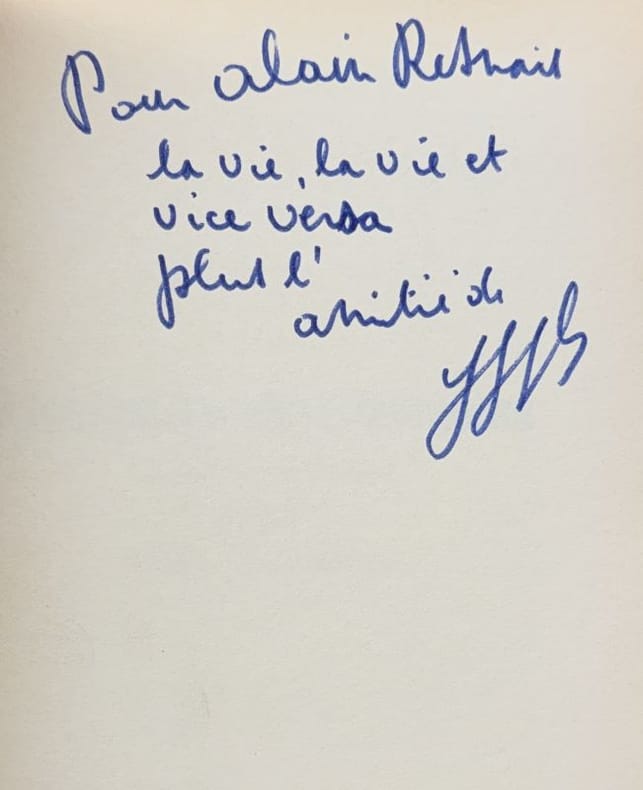 Pour Alain Resnais
la vie, la vie et
vice versa
plus l'
amitié de